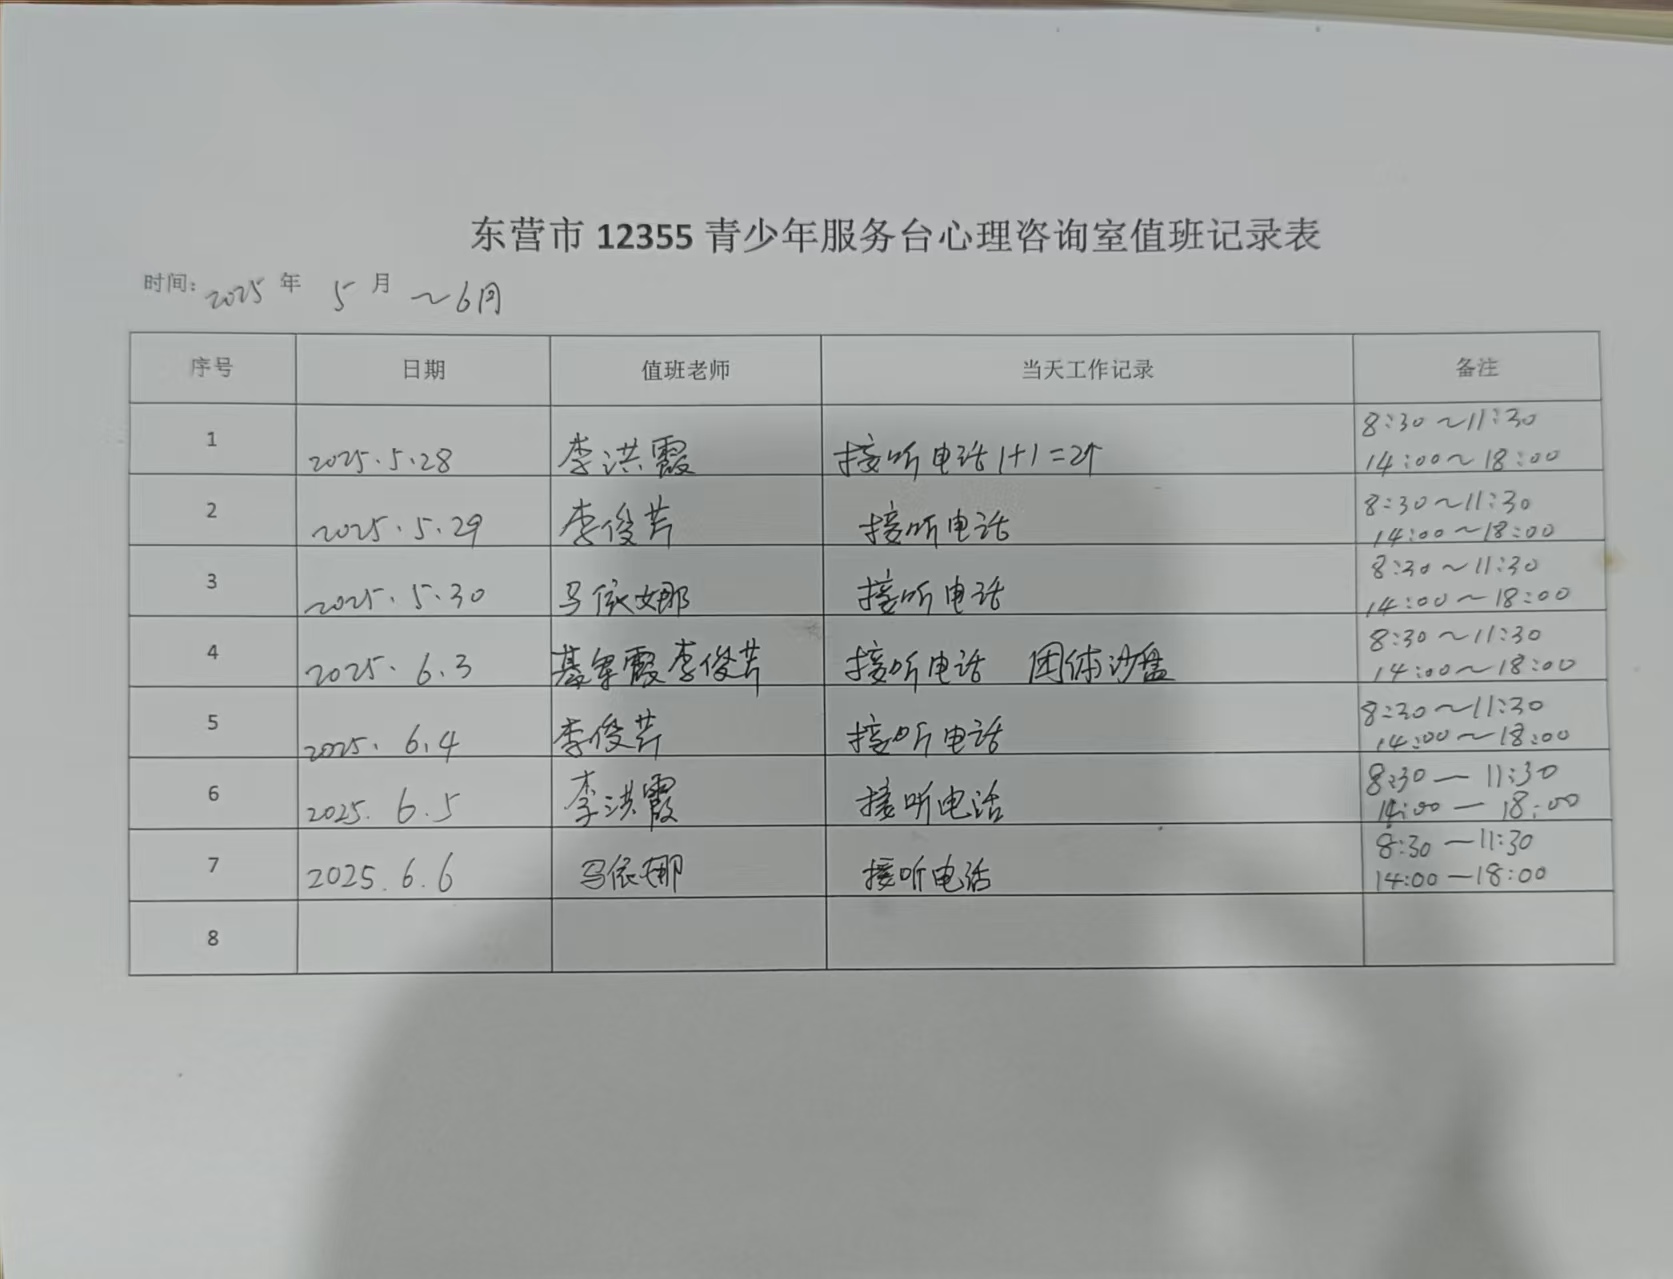 东营市 12355 青少年服务台心理咨询室值班记录表
时间: 2025 年 5 月 ~6月
序号 日期 值班老师 当天工作记录 备注
1 2025.5.28 李洪霞 接听电话 1+1=2个 8:30~11:30
14:00~18:00
2 2025.5.29 李俊芹 接听电话 8:30~11:30
14:00~18:00
3 2025.5.30 马依娜 接听电话 8:30~11:30
14:00~18:00
4 2025.6.3 霞 李俊芹 接听电话 团体沙盘 8:30~11:30
14:00~18:00
5 2025.6.4 李俊芹 接听电话 8:30~11:30
14:00~18:00
6 2025.6.5 李洪霞 接听电话 8:30—11:30
14:00—18:00
7 2025.6.6 马依娜 接听电话 8:30—11:30
14:00—18:00
8